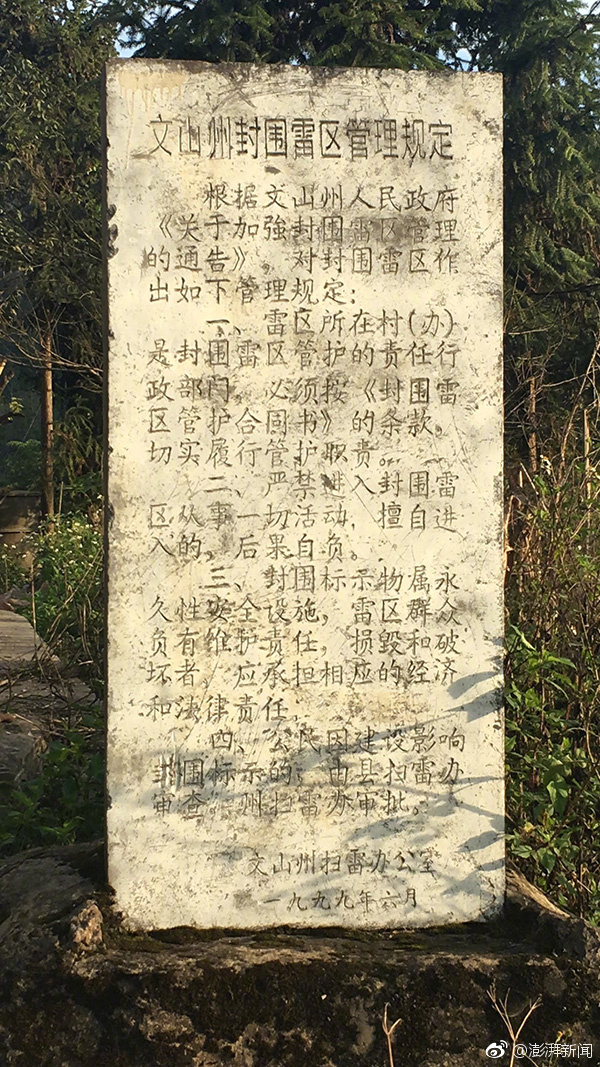 文山州封围雷区管理规定
根据文山州人民政府
《关于加强封围雷区管理
的通告》。对封围雷区作
出如下管理规定：
一、雷区所在村(办)
是封围雷区管护的责任行
政部门，必须按《封围雷
区管护合同书》的条款。
切实履行管护职责。
二、严禁进入封围雷
区从事一切活动，擅自进
入的，后果自负。
三、封围标示物属永
久性安全设施，雷区群众
负有维护责任，损毁和破
坏者，应承担相应的经济
和法律责任。
四、公民因建设影响
封围标示的；由县扫雷办
审查。州扫雷办审批。
文山州扫雷办公室
一九九九年六月
@澎湃新闻